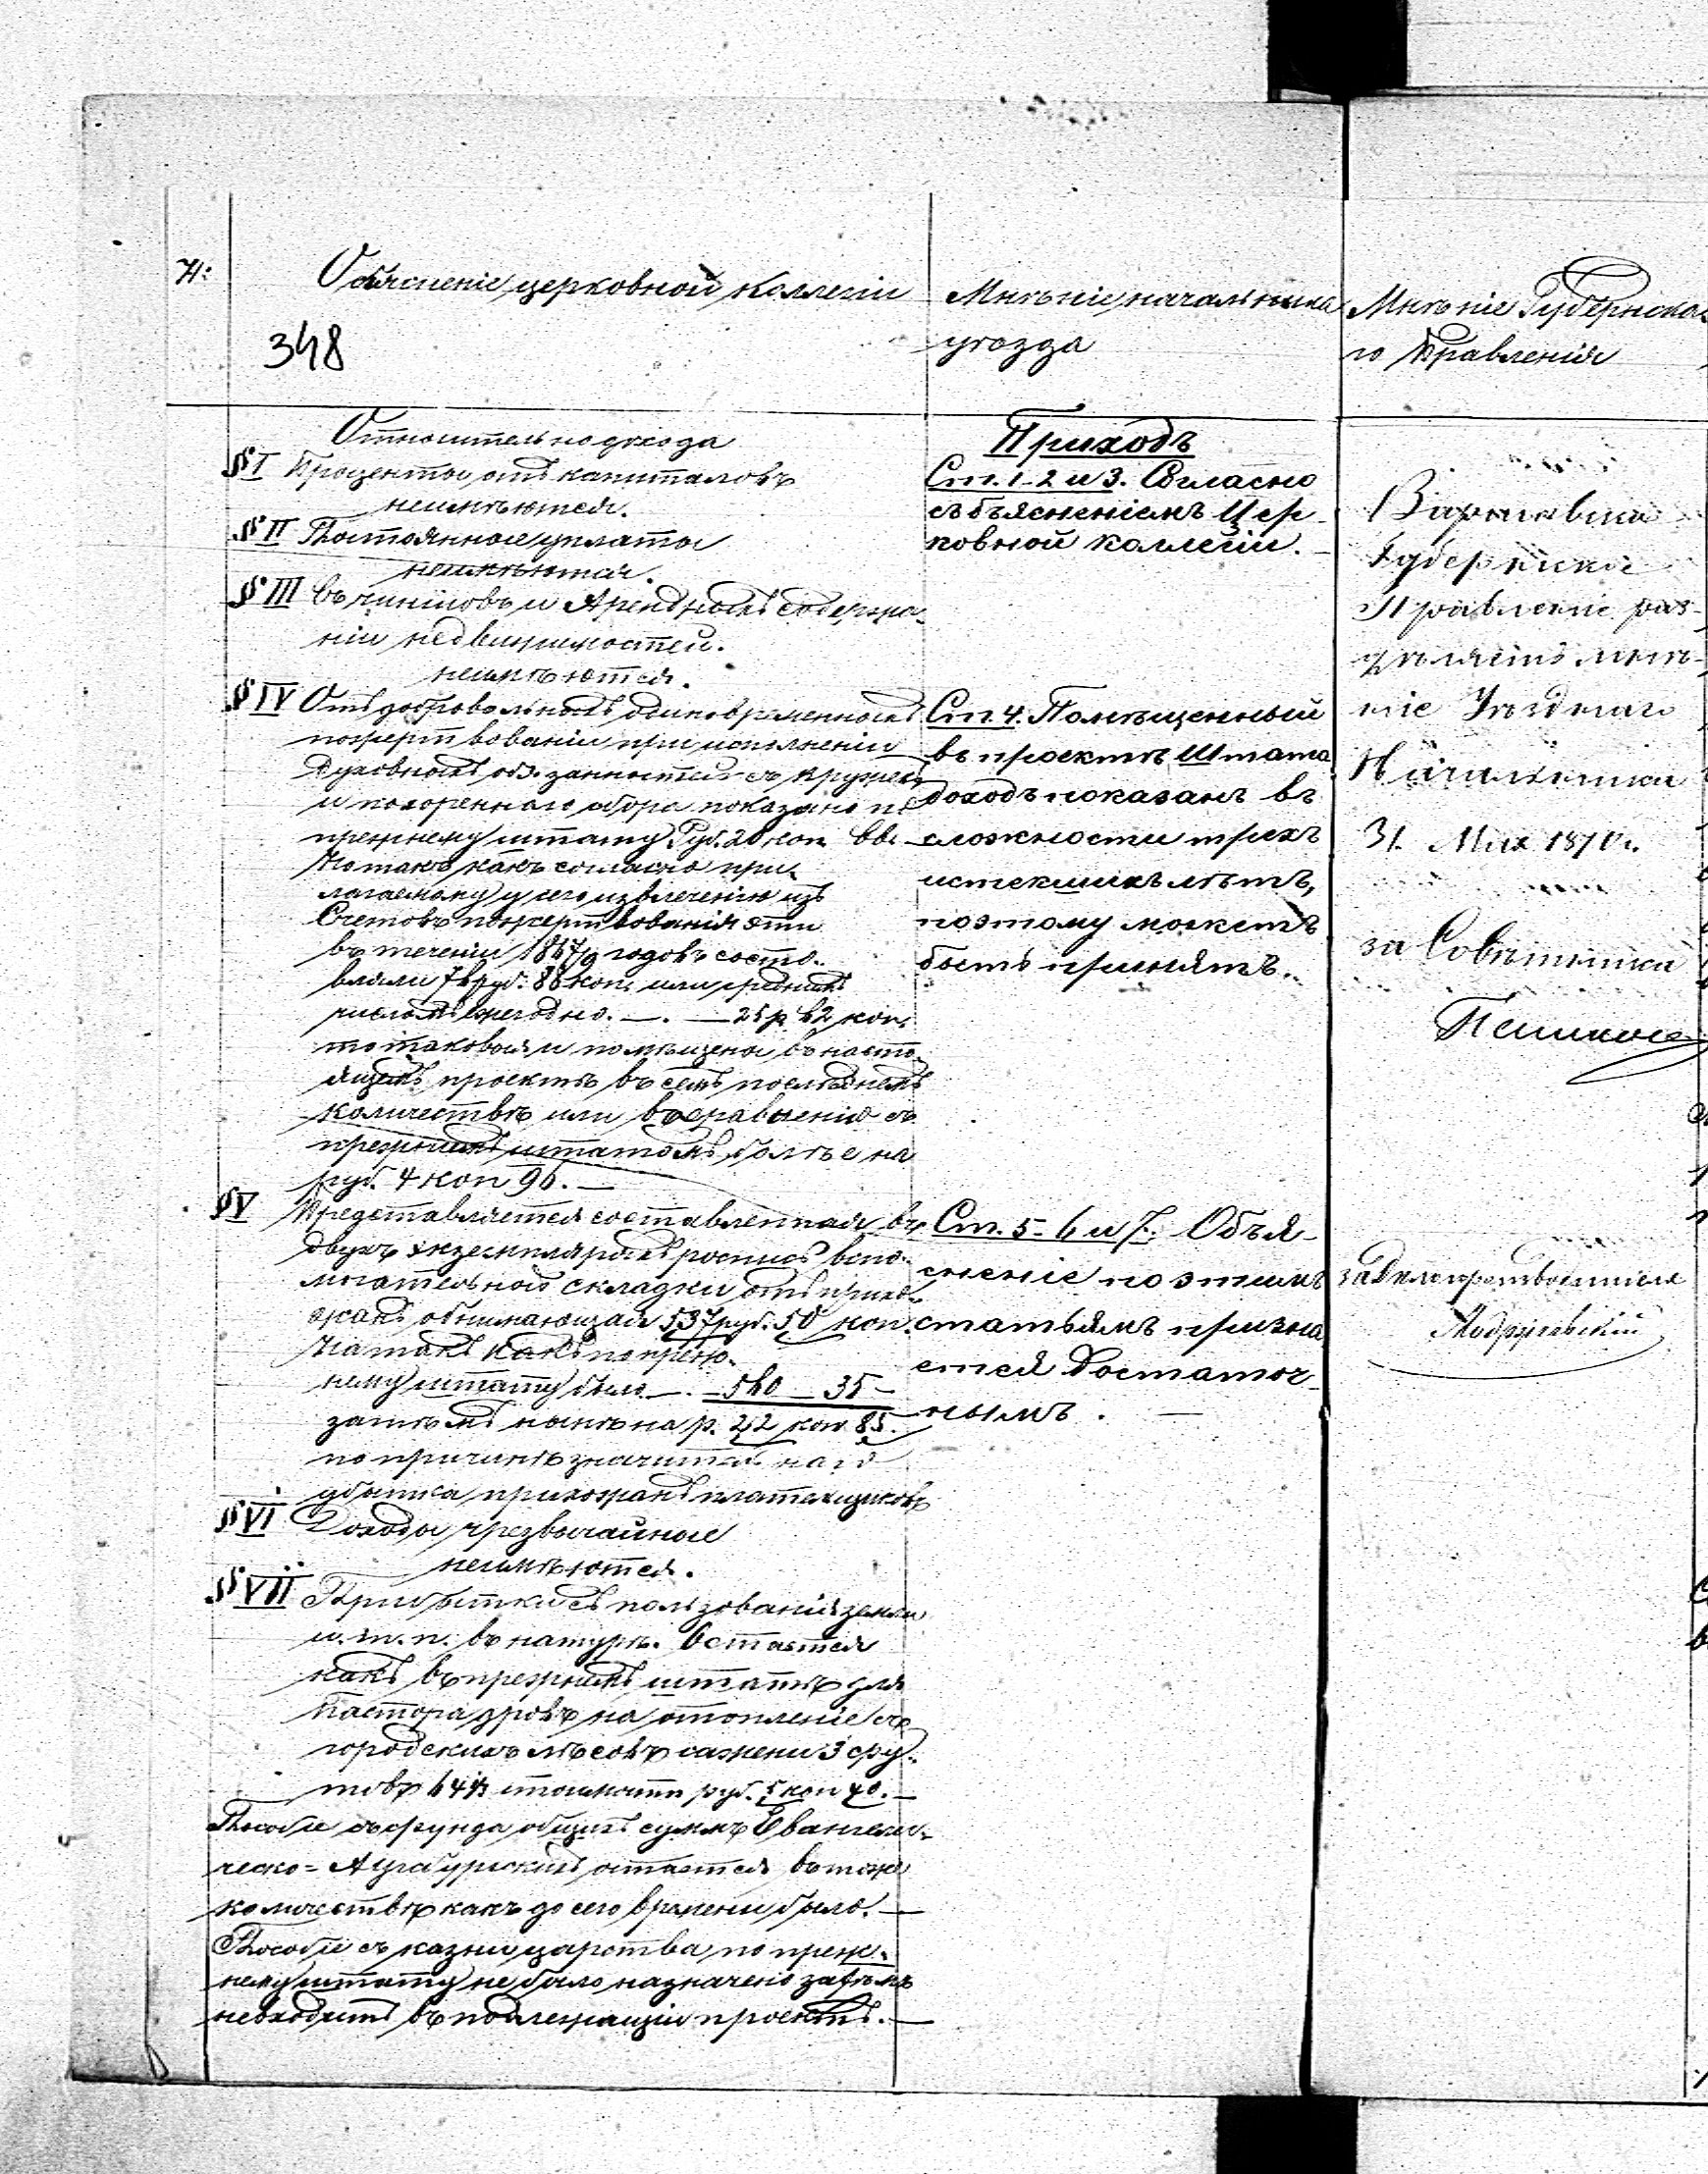 Объясненіе церковной коллегіи
348
Относительно дохода
§ I Проценты отъ капиталовъ
неимѣются.
§ II Постоянные уплаты
неимѣются.
§ III въ чиншовъ и Арендномъ содержа-
ніи недвижимостей.
неимѣются.
§ IV Отъ добровольныхъ единовременныхъ
пожертвованій при исполненіи
духовныхъ обязанностей съ кружек
и похореннаго сбора показано по
прежнему штату Руб. 20 коп.
Но такъ какъ согласно при-
лагаемому у сего извлеченію изъ
Счетовъ пожертвованія эти
въ теченіи 1867/9 годовъ соста-
вляли руб. 88 коп. или среднимъ
числомъ ежегодно. — . — 25 р. 62 коп.
то таковыя и помѣщены въ насто-
ящемъ проектѣ въ семъ послѣднемъ
количествѣ или въ сравненіи съ
прежнимъ штатомъ болѣе на
руб. 4 коп 96. —
§ V Представляется составленная въ
двухъ экземплярахъ роспись вспо-
могательной складки отъ прихо-
жанъ обнимающая 537 руб. 50 коп.
На такъ какъ по преж-
нему штату было — . — 560 — 35 —
затѣмъ нынѣ на р. 22 коп 85.
по причинѣ значительнаго
убытка прихожанъ платящиковъ
§ VI Доходы чрезвычайные
неимѣются.
§ VII Прибытки съ пользованія земли
и. т. п. въ натурѣ. Остается
какъ въ прежнемъ штатѣ для
пастора дровъ на отопленіе съ
городскихъ лѣсовъ сажени 3 фу-
товъ стоимости руб. 5 коп 40. —
Пособіе съ фунда общихъ суммъ Евангели-
ческо-Аугсбургскихъ остается въ томже
количествѣ какъ до сего времени было. —
Пособіе съ казны царства по преж-
нему штату не было назначено затѣмъ
невходитъ въ подлежащій проектъ. —
Мнѣніе начальника
уѣзда
Приходъ
Ст. 1-2 и 3. Согласно
съ объясненіемъ Цер-
ковной коллегіи. —
Ст. 4. Помѣщенный
въ проектѣ Штата
доходъ показанъ въ
сложности трехъ
истекшихъ лѣтъ,
поэтому можетъ
быть принятъ.
Ст. 5-6 и 7. Объя-
сненіе по этимъ
статьямъ призна
ется достаточ-
нымъ. —
Мнѣніе Губернска-
го Правленія
Варшавское
Губернское
Правленіе раз-
дѣляетъ мнѣ-
ніе Уѣзднаго
Начальника
31 Мая 1870 г.
за Совѣтника
за Дѣлопроизводителя